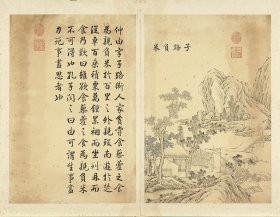 子路負米
仲由字子路衛人家貧嘗食藜藿之食
為親負米於百里之外親歿南遊於楚
從車百乘積粟萬鍾累裀而坐列鼎而
食乃歎曰雖欲食藜藿之食為親負米
不可得也孔子聞之曰由可謂生事盡
力死事盡思者也